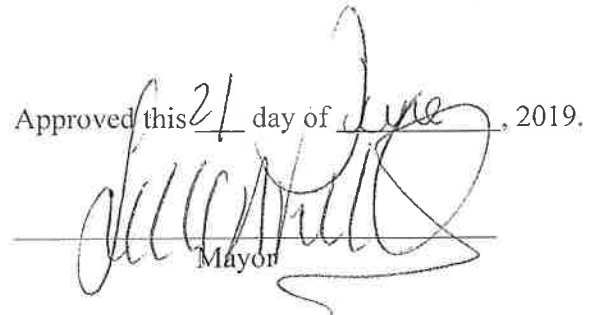 Approved this 21 day of June, 2019.
Mayor